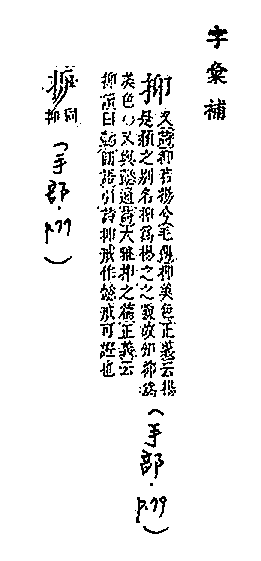 字彙補
抑 又詩抑若揚兮毛傳抑美色正義云揚
是顙之別名抑爲揚之之貌故知抑爲
美色○又與懿通詩大雅抑之篇正義云
抑讀曰懿國語引詩抑戒作懿戒可證也
(手部·p.79)
同抑
(手部·p.79)